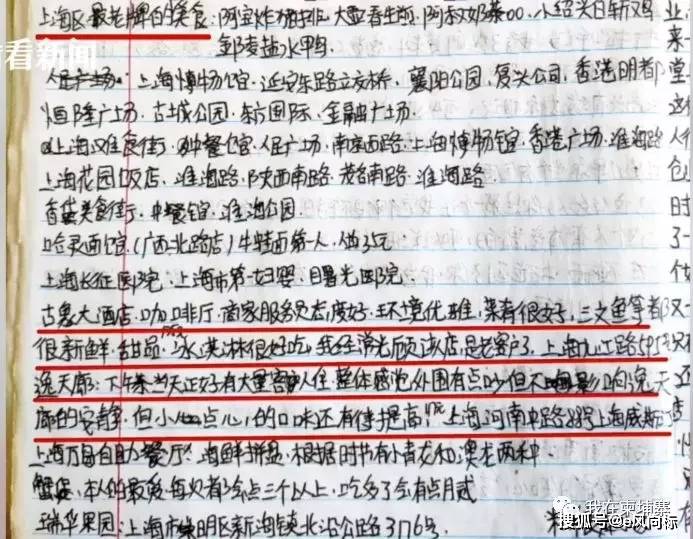 看看新闻
上海区最老牌的美食:阿宝炸猪排.大壶春生煎.阿初奶茶00.小绍兴白斩鸡
邹凌盐水鸭
人民广场.上海博物馆.延安东路立交桥.襄阳公园.复兴公司.香港明都
恒隆广场.古城公园.东方国际.金融广场.
上海美食街.种餐馆.人民广场.南京西路.上海博物馆.香港广场.淮海路
上海花园饭店.淮海路.陕西南路.茂名南路.淮海路.
香港美食街.中餐馆.淮海公园.
哈灵面馆.(广西北路店)牛特面第一人.做25元
上海长征医院.上海市第一妇婴.曙光医院.
古象大酒店.咖啡厅.商家服务员态度好.环境优雅.菜肴很好.三文鱼等都
很新鲜.甜品.冰淇淋很好吃.我经常光顾该店.是老客户了.上海九江路595号
逸天廊:下午茶当天正好有大量客人住.整体感觉外围有点吵但不影响逸天
廊的安静.但小点心的口味还有待提高.上海河南中路88号上海威斯
上海万易自助餐厅:海鲜拼盘.根据时节有小青龙和澳龙两种
蟹庄.本人的最爱每次都会点三个以上.吃多了会有点月贰
瑞华果园:上海市崇明区新海镇北沿公路3176号.
业
来
堂
人
仓
时
了一
做
双
我在柬埔寨
搜狐号@风向标